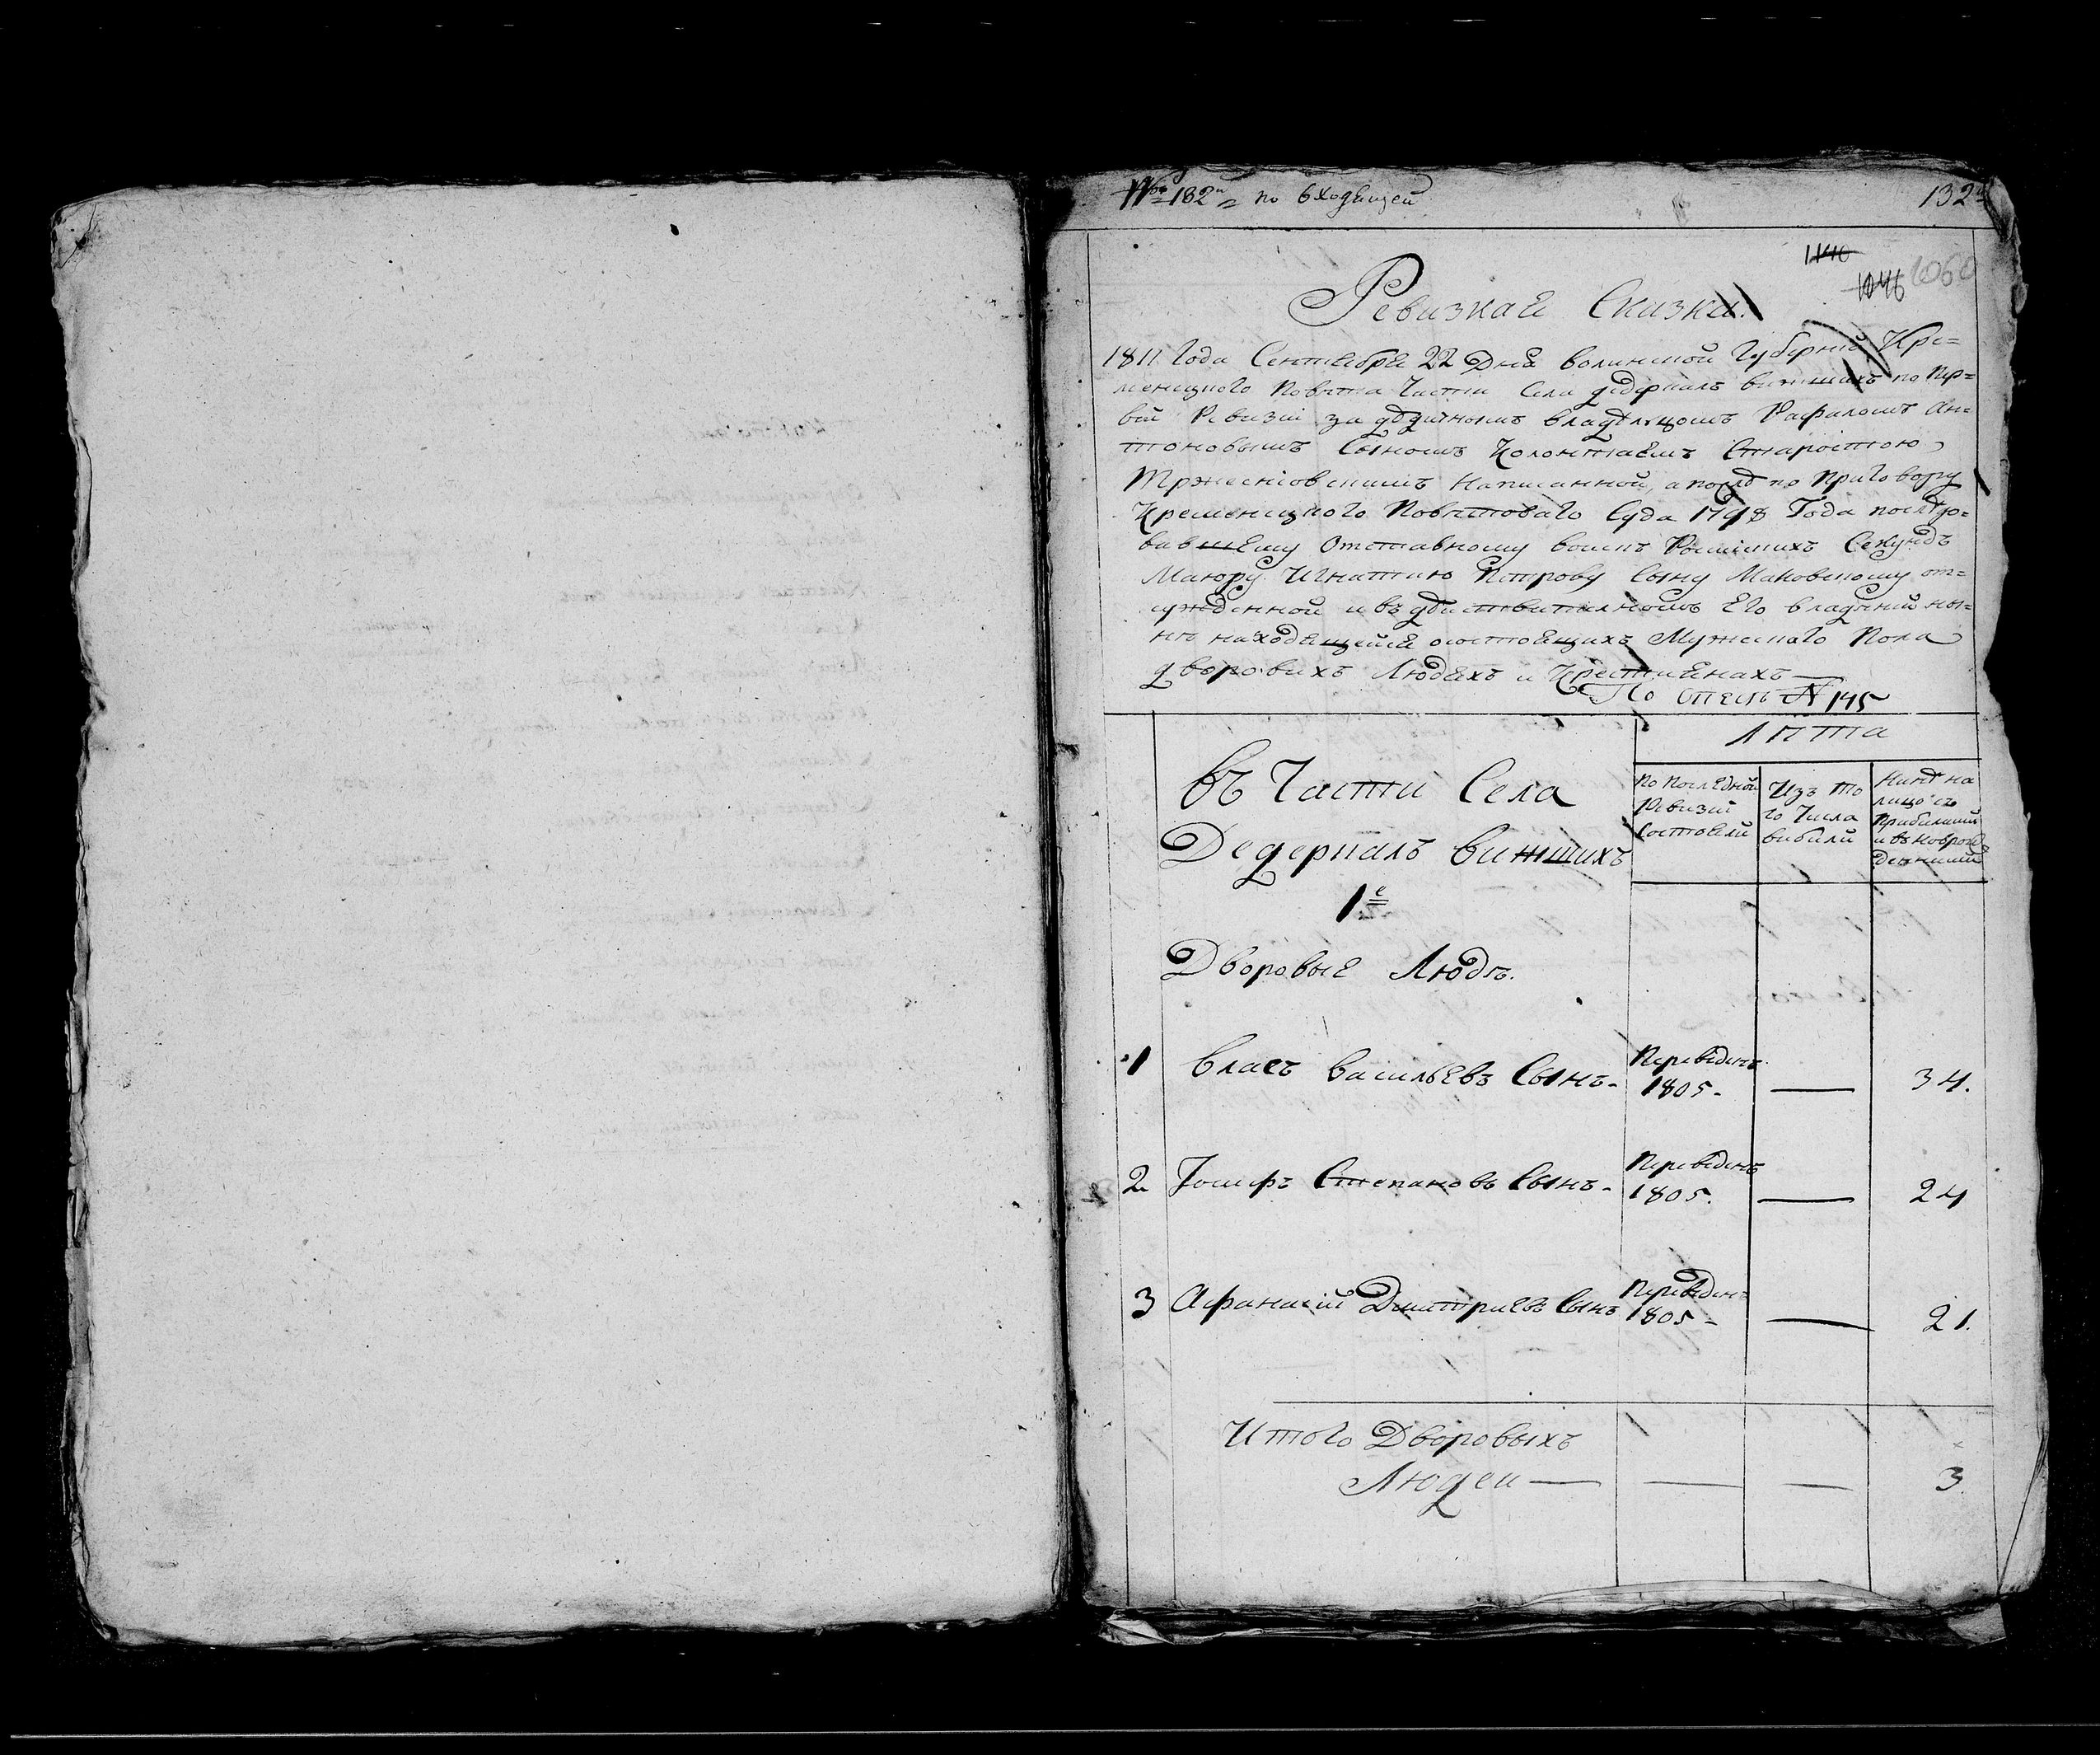 № 182 = по входящей
132
1140
1046 1060
Ревизкаѧ Сказка.
1811. Года Сентѧбрѧ 22 Днѧ волинской Губерній Кре=
менецкого Повѣта Части Села Дедеркалъ вижшихъ по пер=
вій Ревизіи за дѣдичнымъ владѣльцомъ Рафаломъ Ан=
тоновымъ Сыномъ Колонтаемъ Старостою
Тржесніовскимъ написанной, а послѣ по приговору
Кременецкого Повѣтоваго Суда 1798 Года послѣдо=
вавшему Отставному воискъ Россійскихъ Секундъ
Маіору Игнатию Петрову Сыну Маковскому от=
сужденной и въ дѣиствителномъ Его владѣний ны=
нѣ находѧщейсѧ о состоѧщихъ Мужескаго Пола
дворовихъ Людѧхъ и Крестиѧнахъ
По описѣ № 145
Лѣта
въ Части Села
Дедеркалъ вижшихъ
1е
Дворовые Людѣ.
По послѣдной
Ревизіи
состоѧли
Изъ то
го Числа
вибыли
Нинѣ на
лицо съ
Прибилими
и въновророж
денними
1 Власъ васильевъ Сынъ. Переведенъ 1805. — 34.
2 Іосифъ Степановъ Сынъ. Переведенъ 1805. — 24
3 Афанасій Дмитриевъ Сынъ Переведенъ 1805 — 21.
Итого Дворовыхъ
Людеи — — — 3